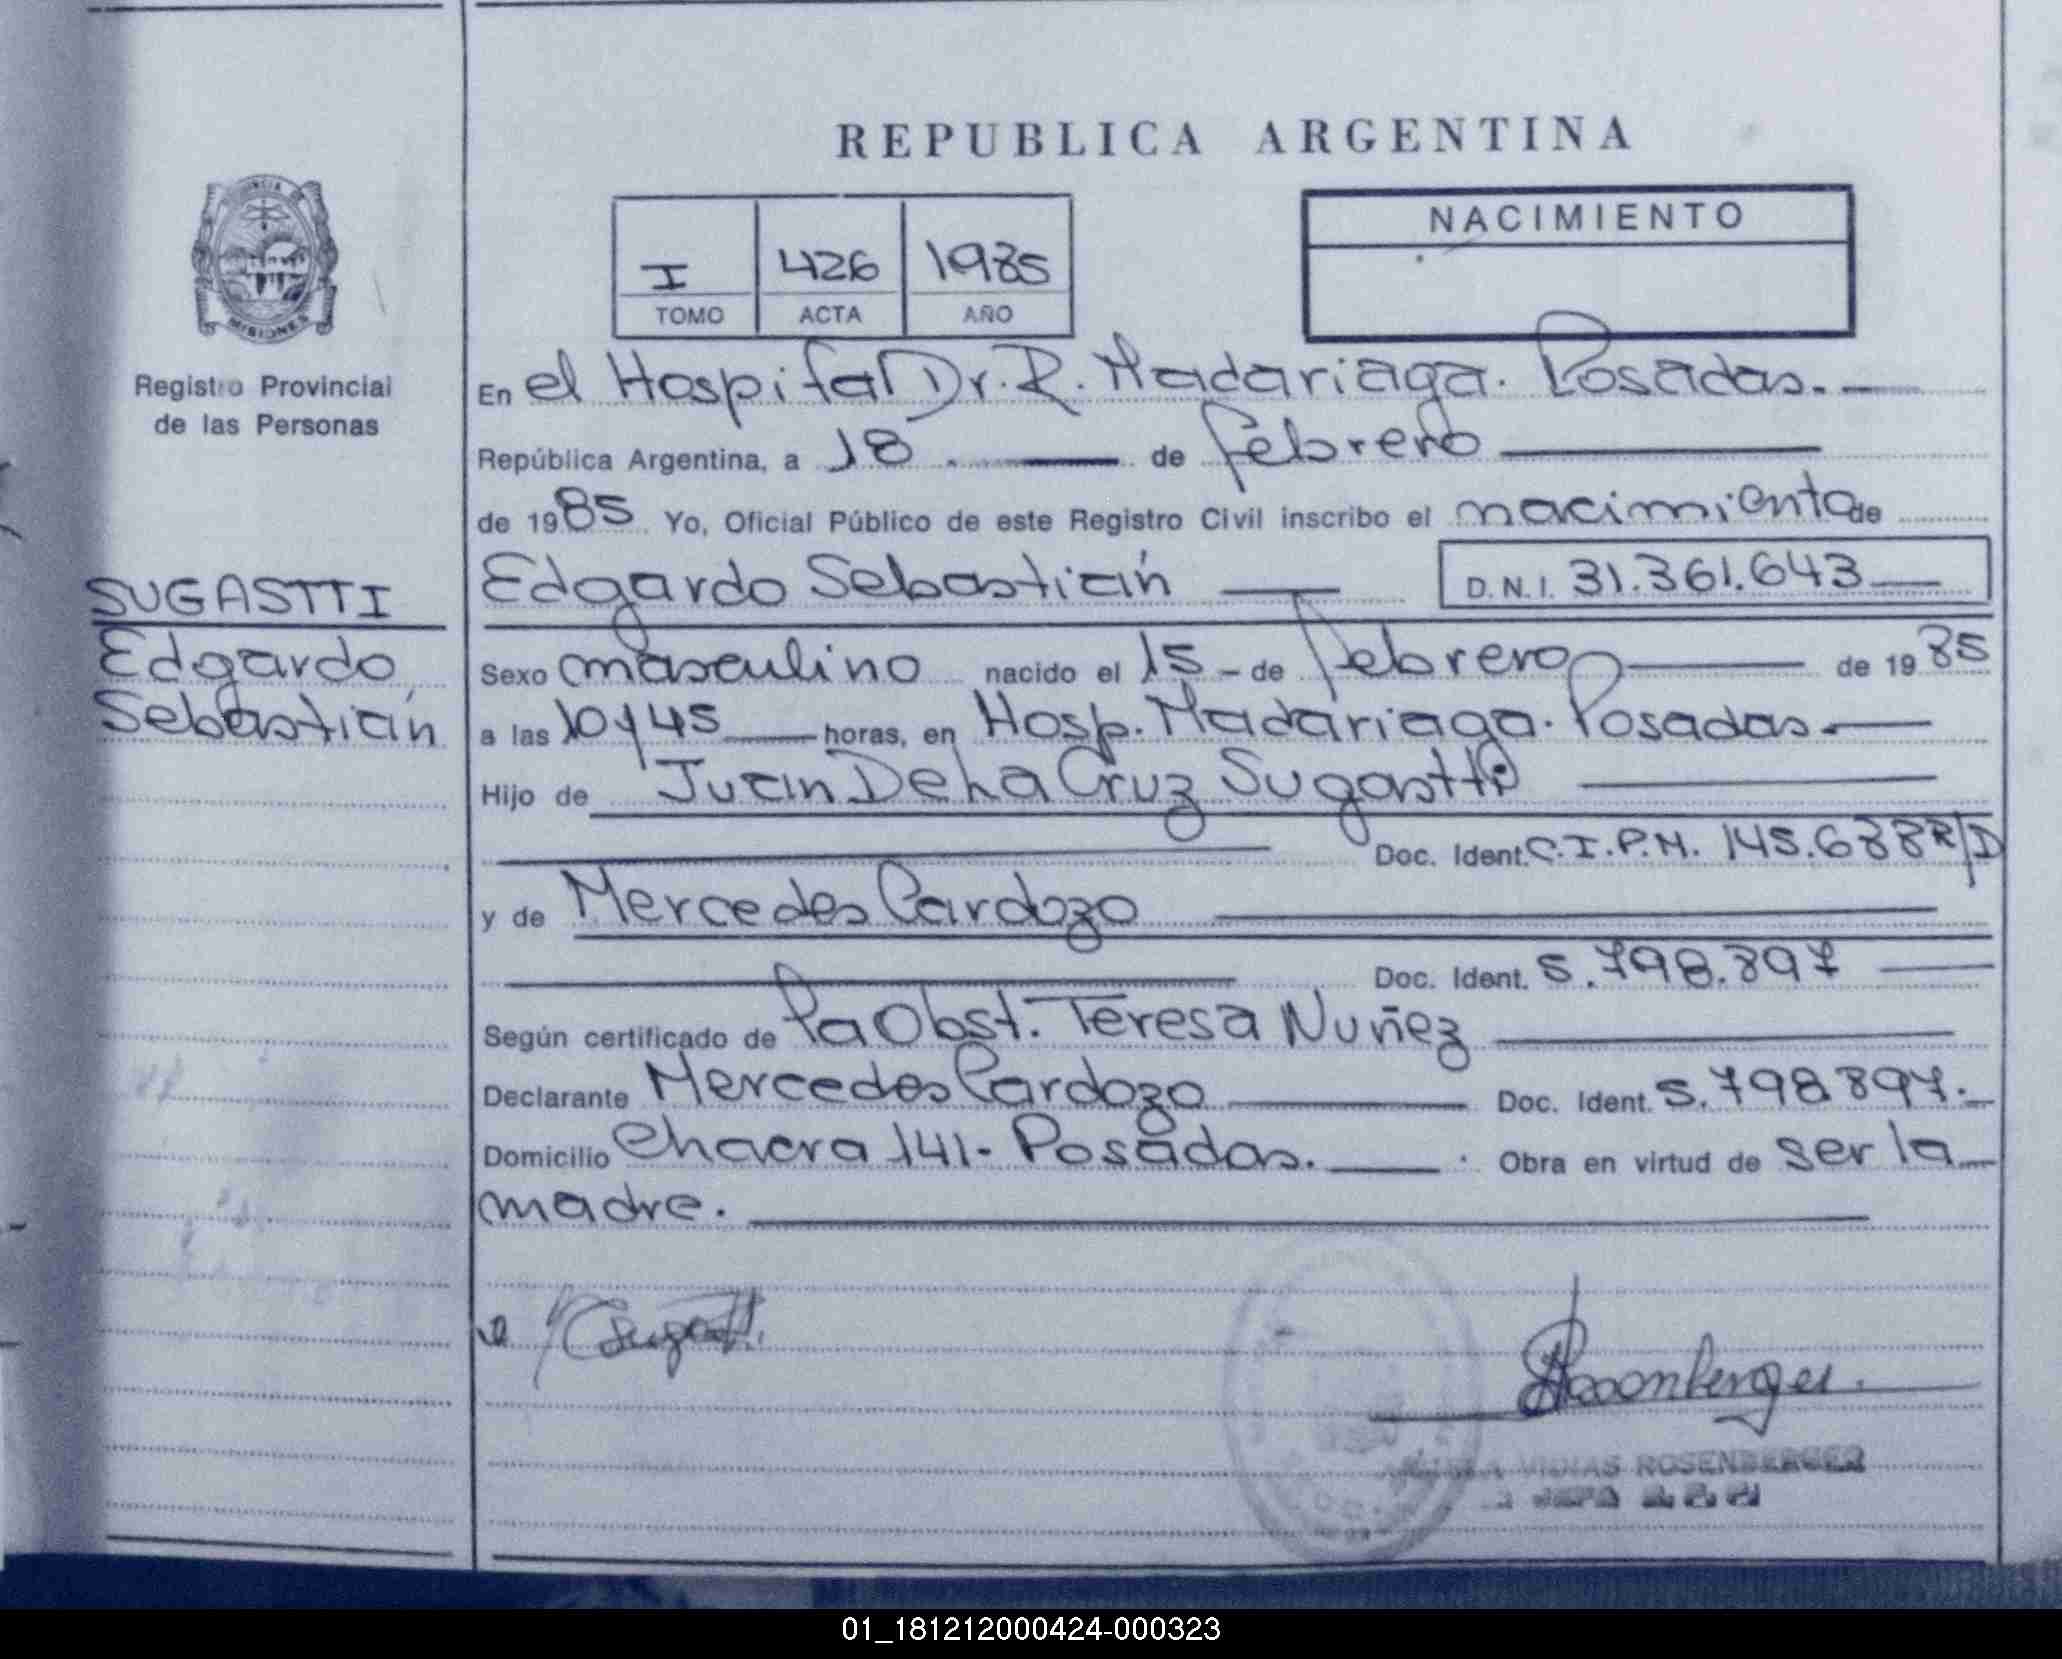 REPUBLICA ARGENTINA
NACIMIENTO
I 426 1985
TOMO ACTA AÑO
MISIONES
Registro Provincial
de las Personas
SUGASTTI
Edgardo
Sebastián
En el Hospital Dr. R. Madariaga. Posadas.
República Argentina, a 18 de febrero
de 1985 Yo, Oficial Público de este Registro Civil inscribo el nacimiento de
Edgardo Sebastián D.N.I. 31.361.643
Sexo masculino nacido el 15 - de febrero de 1985
a las 10 y 45 horas, en Hosp. Madariaga. Posadas.
Hijo de Juan De La Cruz Sugastti
Doc. Ident. C.I.P.M. 145.688 R/D
y de Mercedes Cardozo
Doc. Ident. 5.798.897
Según certificado de Pa Obst. Teresa Nuñez
Declarante Mercedes Cardozo Doc. Ident. 5.798.897.
Domicilio Chacra 141- Posadas. Obra en virtud de ser la
madre.
Rosenberger
VIDIAS ROSENBERGER
01_181212000424-000323